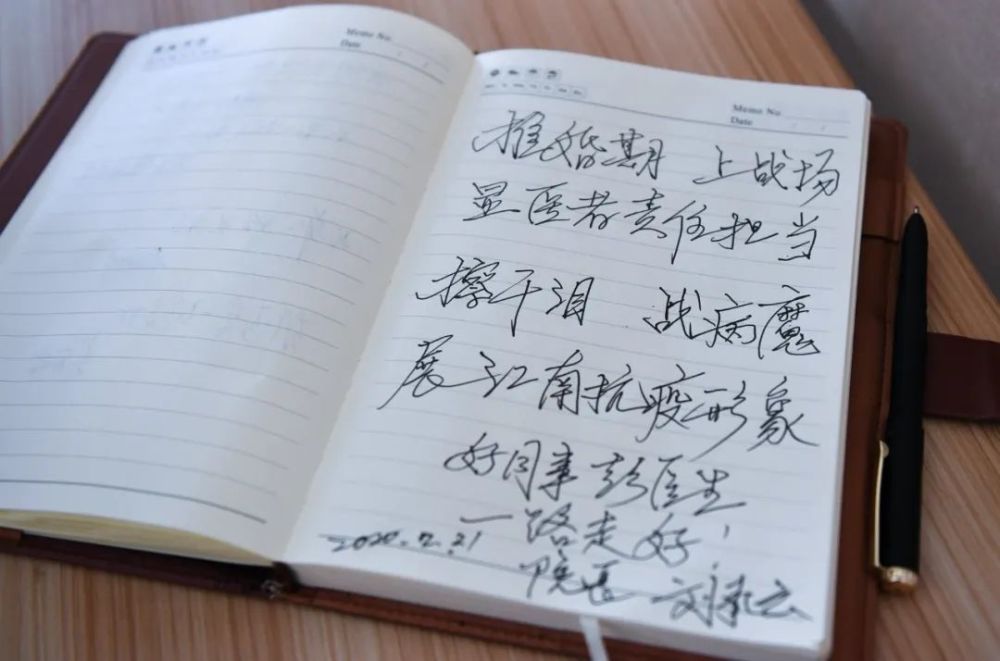 Memo No.
Date
Memo No
Date
推婚期 上战场
显医者责任担当
擦干泪 战病魔
展江南抗疫形象
好同事彭医生
一路走好!
2020.2.21
院长 刘